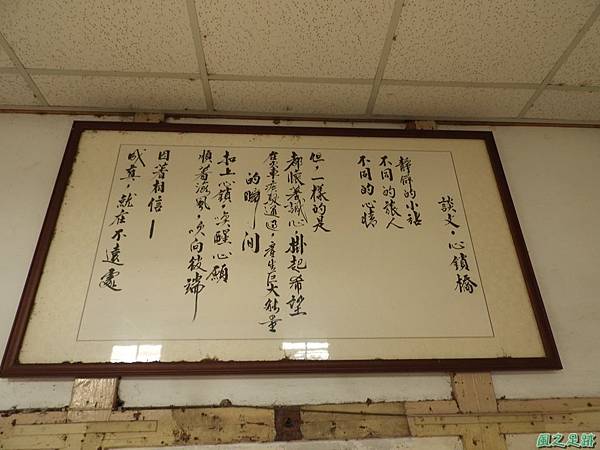 談文，心鎖橋
靜僻的小站
不同的旅人
不同的心情
但，一樣的是
都懷著誠心，掛起希望
在火車磅礡通過，產生巨大能量
的瞬間
扣上心鎖，喚醒心願
順著海風，吹向彼端
因著相信—
成真，就在不遠處
風之足跡